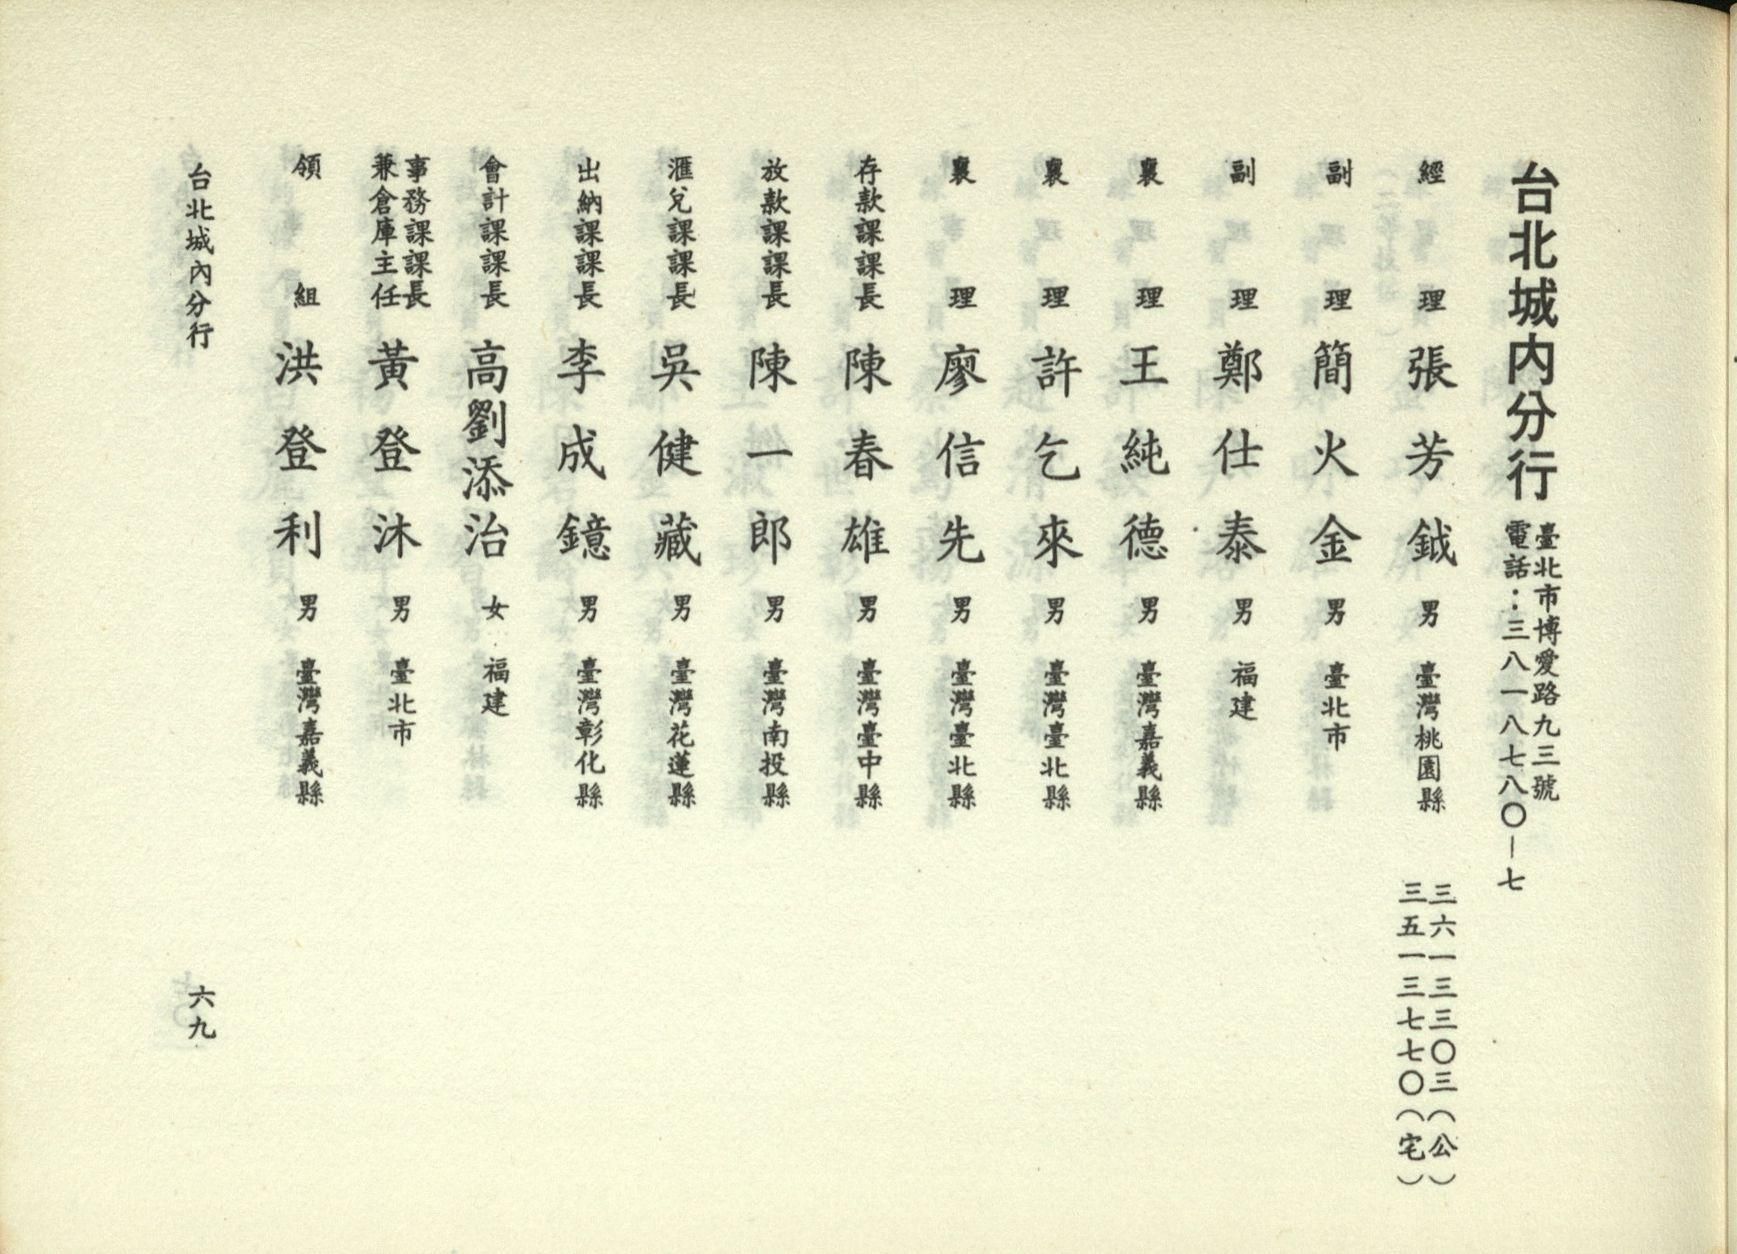 台北城內分行
臺北市博愛路九三號
電話：三八一八七八〇－七
經理 張芳鉞 男 臺灣桃園縣
三六一三三〇三（公）
三五一三七七〇（宅）
副理 簡火金 男 臺北市
副理 鄭仕泰 男 福建
襄理 王純德 男 臺灣嘉義縣
襄理 許乞來 男 臺灣臺北縣
襄理 廖信先 男 臺灣臺北縣
存款課課長 陳春雄 男 臺灣臺中縣
放款課課長 陳一郎 男 臺灣南投縣
滙兌課課長 吳健藏 男 臺灣花蓮縣
出納課課長 李成鐿 男 臺灣彰化縣
會計課課長 高劉添治 女 福建
事務課課長
兼倉庫主任 黃登沐 男 臺北市
領組 洪登利 男 臺灣嘉義縣
台北城內分行
六九